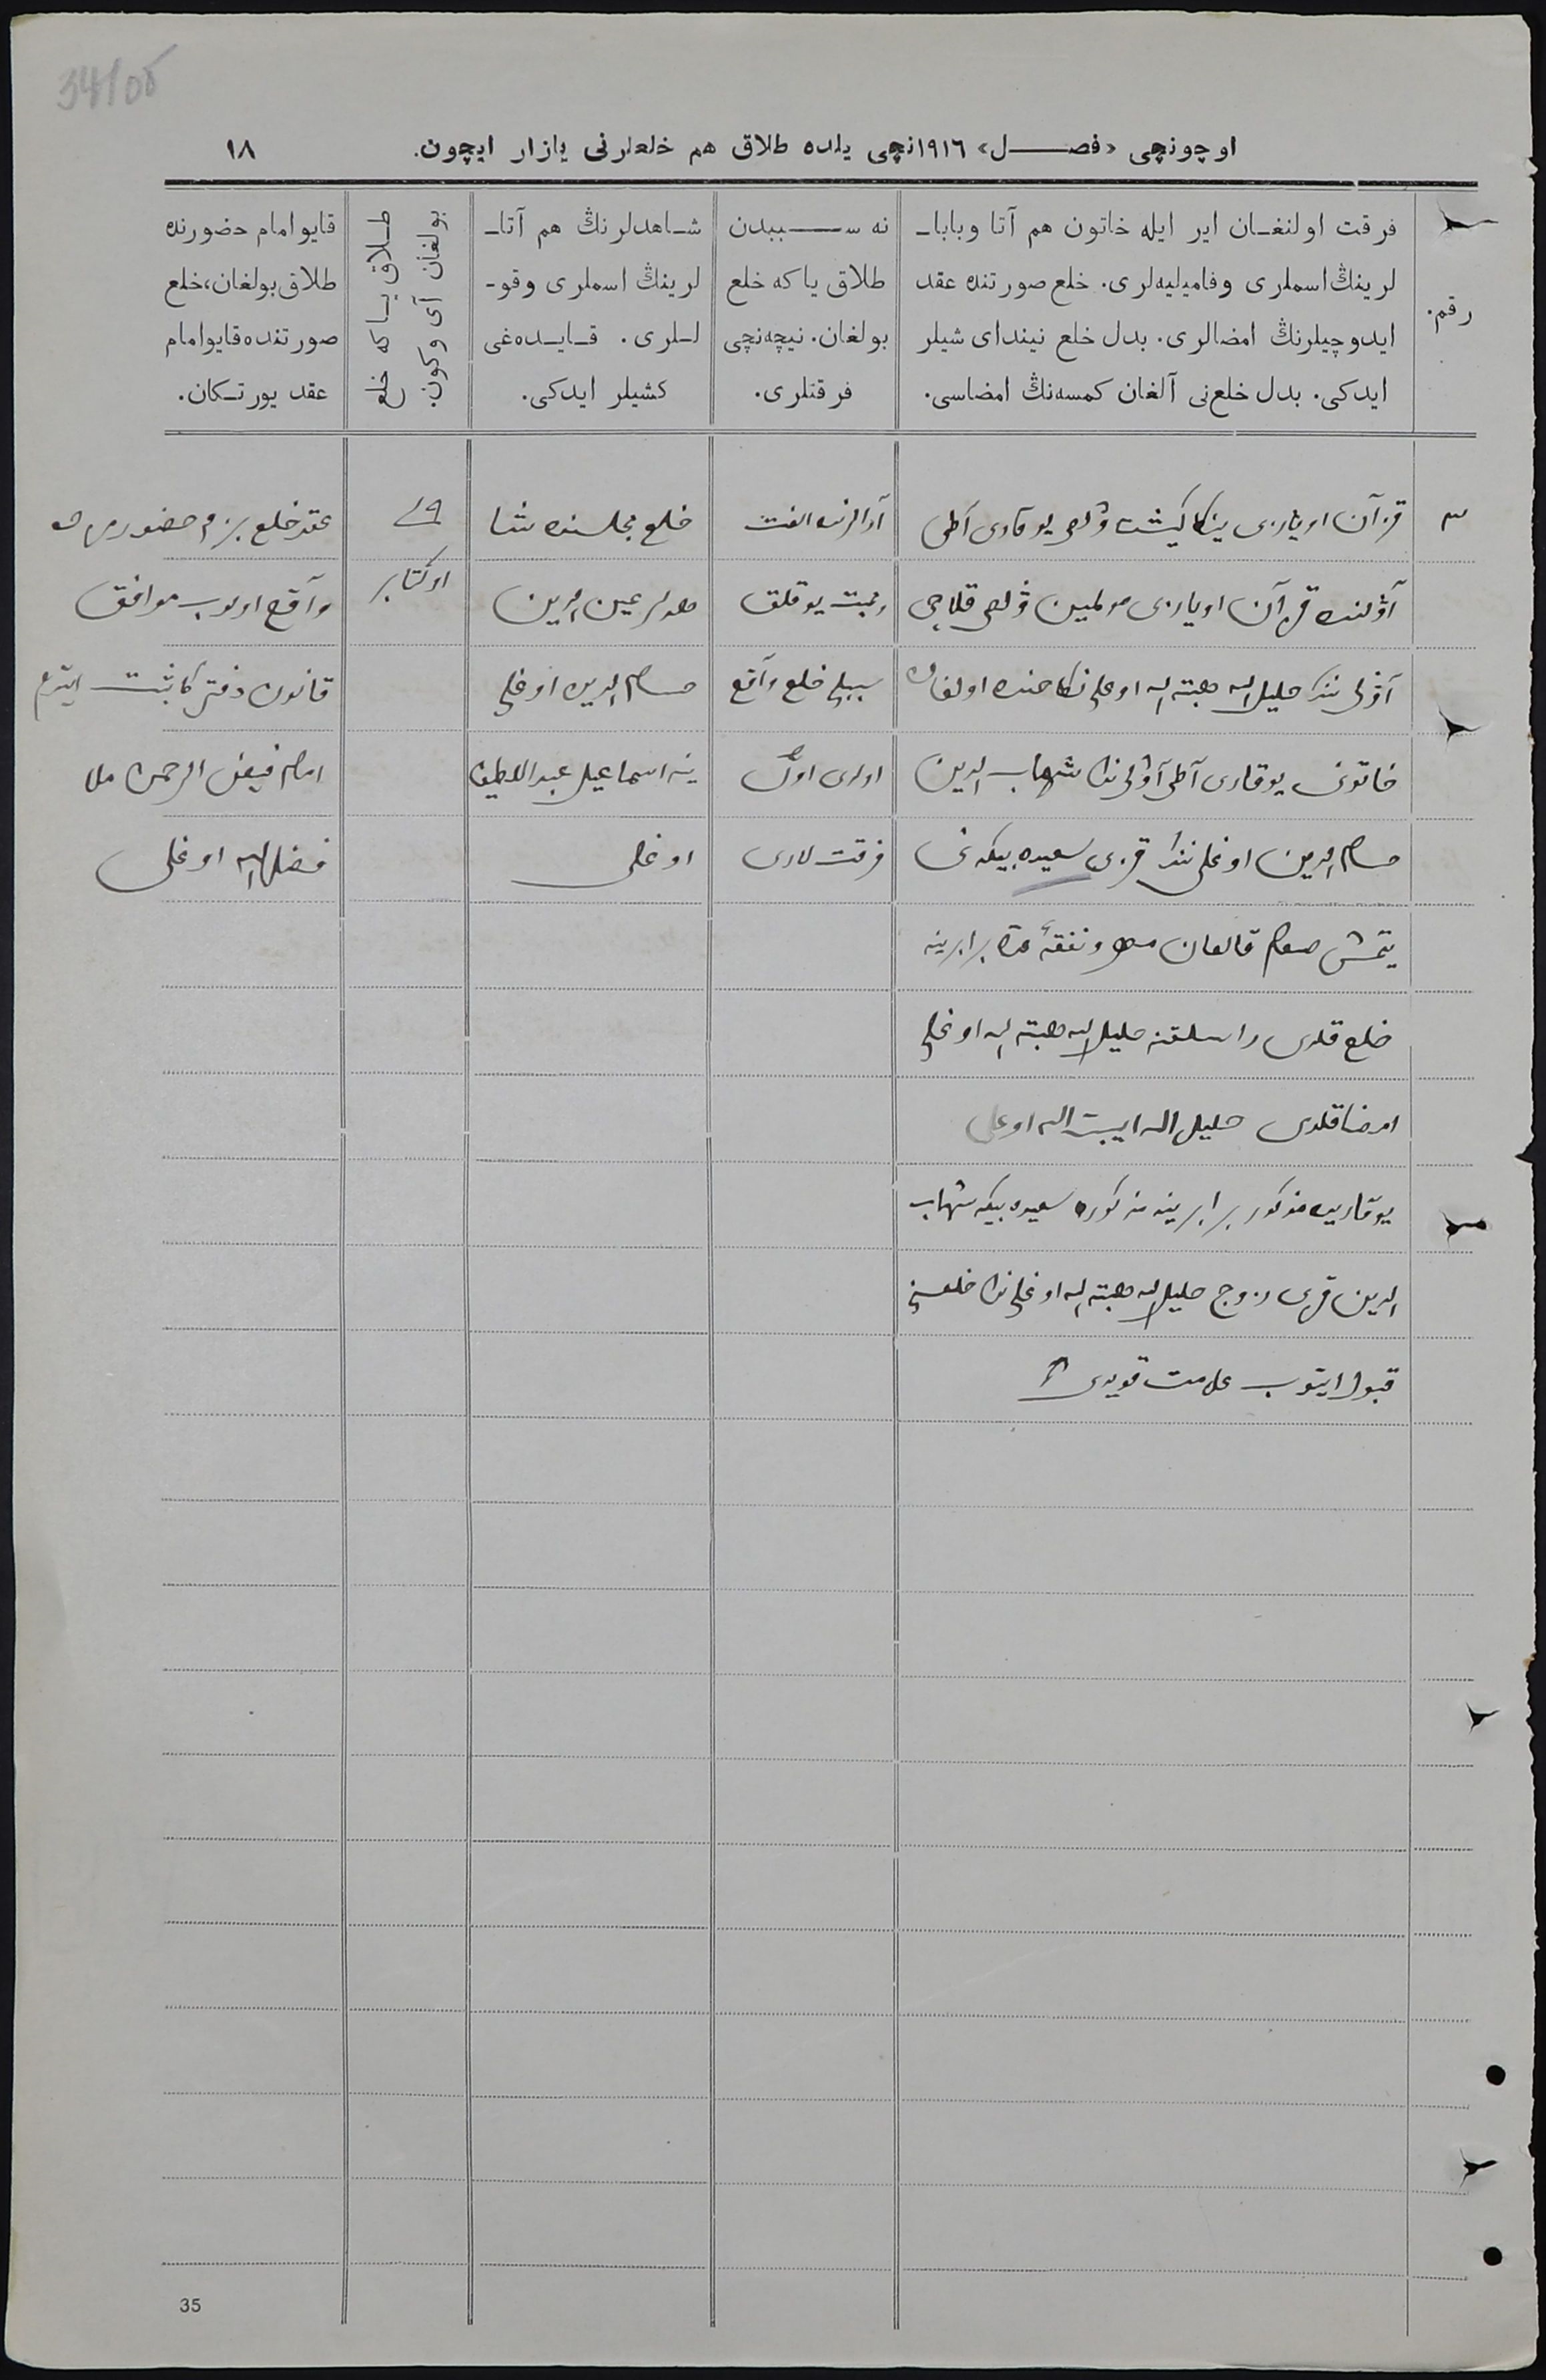 34/08
اوچونچی «فصل» ١٩١٦نچی یلده طلاق هم خلعلرنی یازار ایچون.
١٨
رقم.
فرقت اولنغان ایر ایله خاتون هم آتا وبابا-
لرینڭ اسملری وفامیلیه‌لری. خلع صورتنده عقد
ایدوچیلرنڭ امضالری. بدل خلع نیندای شیلر
ایدکی. بدل خلع‌نی آلغان کمسه‌نڭ امضاسی.
نه سببدن
طلاق یا که خلع
بولغان. نیچه‌نچی
فرقتلری.
شاهدلرنڭ هم آتا-
لرینڭ اسملری وقو-
للری. قایده‌غی
کشیلر ایدکی.
طلاق یا که خلع
بولغان آی وکون.
قایو امام حضورنده
طلاق بولغان، خلع
صورتنده قایو امام
عقد یورتکان.
٣
قزآن اویازی یوقاری آطی
آولنده قزآن اویازی
آولی خلیل الله هبة الله اوغلی نکاحنده اولغان
خاتونی یوقاری آطی آولی شهاب الدین
حسام الدین اوغلی قزی سعیده بیکه‌نی
یتمش صوم قالغان مهر ونفقهٔ عدة برابرینه
خلع قلدی خلیل الله هبة الله اوغلی
امضا قلدی خلیل الله ایبت الله اوغلی
یوقاریده مذکور برابرینه مذکوره سعیده بیکه شهاب
الدین قزی زوج خلیل الله هبة الله اوغلی خلعنی
قبول ایتوب علامت قویدی
آرالرنده الفت
ومحبت یوقلق
سببلی خلع واقع
اولدی اول
فرقت لاری
خلع مجلسنده شا
هدلر عین الدین
حسام الدین اوغلی
ینه اسماعیل عبداللطیف
اوغلی
١٩
اوکتابر
عقد خلع بزم حضورمزده
واقع اولوب موافق
قانون دفترکا ثبت ایتدم
امام فیض الرحمن ملا
فضل الله اوغلی
35